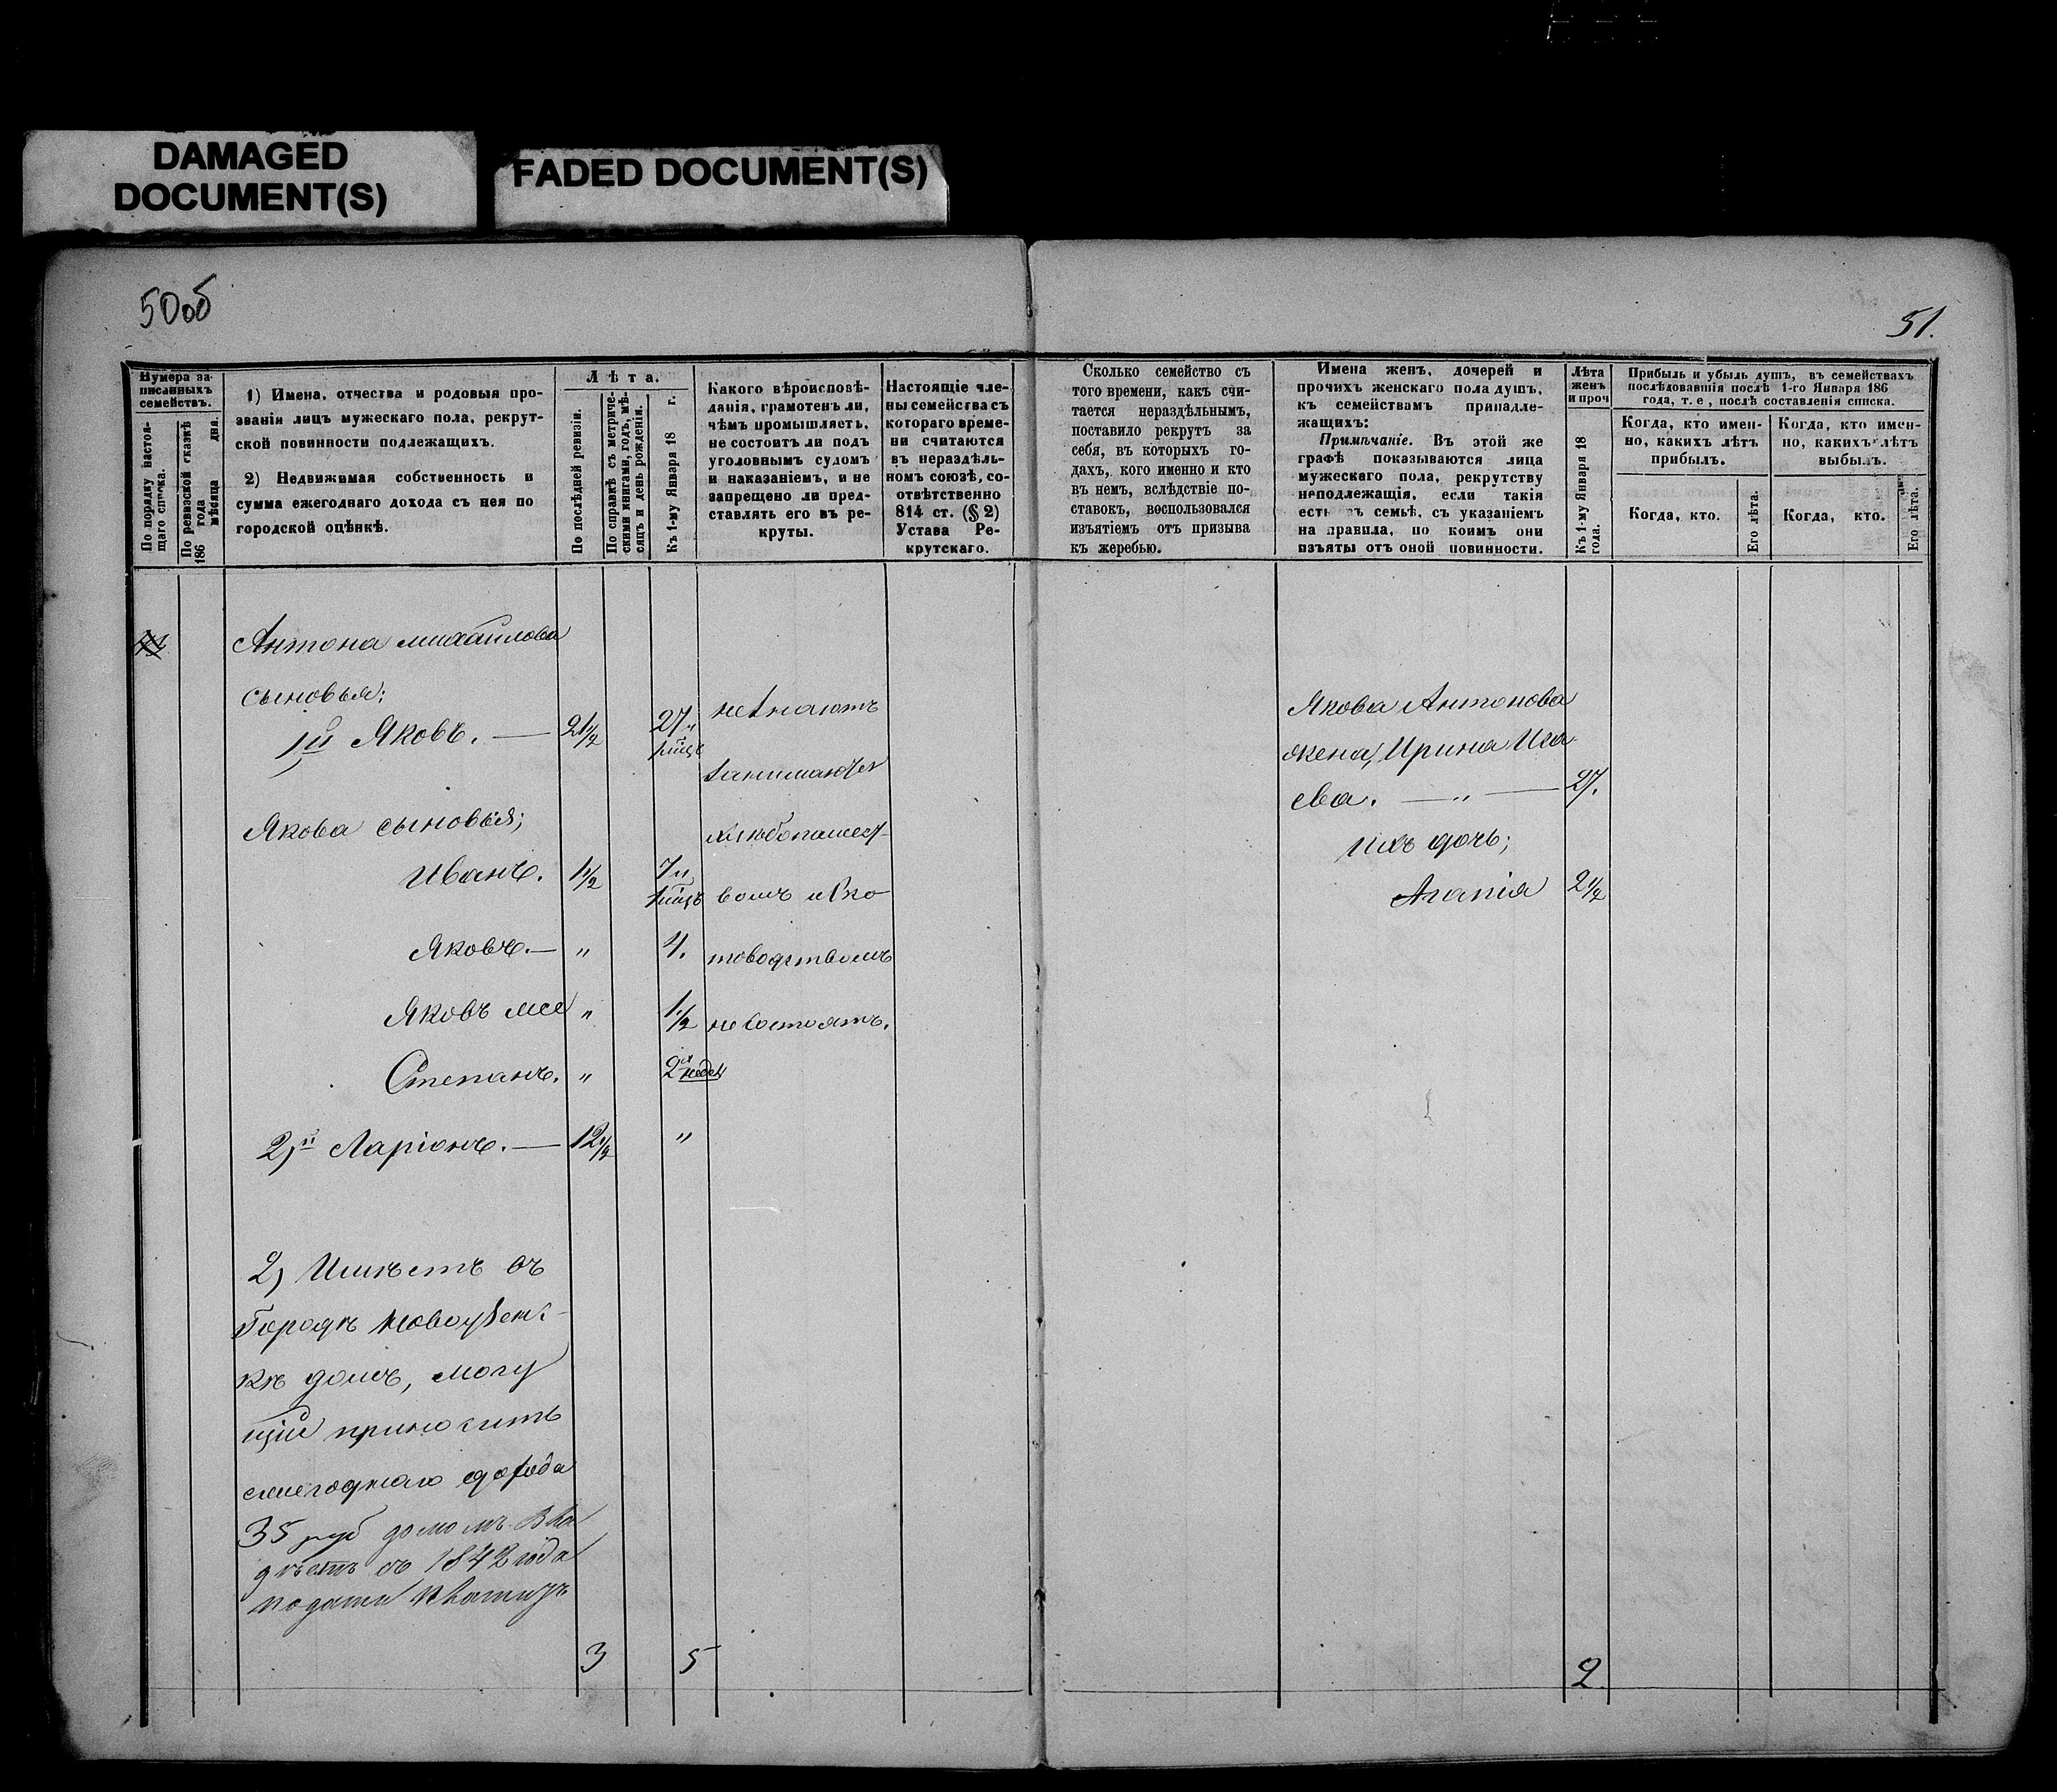 DAMAGED
DOCUMENT(S)
FADED DOCUMENT(S)
50об
51.
Нумера за-
писанныхъ
семействъ.
По порядку настоя-
щаго списка.
По ревизской сказкѣ
186 года мѣсяца дня.
1) Имена, отчества и родовыя про-
званія лицъ мужескаго пола, рекрут-
ской повинности подлежащихъ.
2) Недвижимая собственность и
сумма ежегоднаго дохода съ нея по
городской оцѣнкѣ.
Лѣта.
По послѣдней ревизіи.
По справкѣ съ метриче-
скими книгами, годъ, мѣ-
сяцъ и день рожденія.
Къ 1-му Января 18 г.
Какого вѣроисповѣ-
данія, грамотенъ ли,
чѣмъ промышляетъ,
не состоитъ ли подъ
уголовнымъ судомъ
и наказаніемъ, и не
запрещено ли пред-
ставлять его въ ре-
круты.
Настоящіе чле-
ны семейства съ
котораго време-
ни считаются
въ нераздѣль-
номъ союзѣ, со-
отвѣтственно
814 ст. (§ 2)
Устава Ре-
крутскаго.
Сколько семейство съ
того времени, какъ счи-
тается нераздѣльнымъ,
поставило рекрутъ за
себя, въ которыхъ го-
дахъ, кого именно и кто
въ немъ, вслѣдствіе по-
ставокъ, воспользовался
изъятіемъ отъ призыва
къ жеребью.
Имена женъ, дочерей и
прочихъ женскаго пола душъ,
къ семействамъ принадле-
жащихъ:
Примѣчаніе. Въ этой же
графѣ показываются лица
мужескаго пола, рекрутству
неподлежащія, если такія
есть въ семьѣ, съ указаніемъ
на правила, по коимъ они
изъяты отъ оной повинности.
Лѣта
женъ
и проч
Къ 1-му Января 18
года.
Прибыль и убыль душъ, въ семействахъ
послѣдовавшія послѣ 1-го Января 186
года, т. е, послѣ составленія списка.
Когда, кто имен-
но, какихъ лѣтъ
прибылъ.
Когда, кто имен-
но, какихъ лѣтъ
выбылъ.
Когда, кто.
Его лѣта.
Когда, кто.
Его лѣта.
Антона михайлова
сыновья:
1й Яковъ. — 21½ 27 и
Якова сыновья;
Иванъ. 1½ 7 и
Яковъ. — " 4.
Яковъ ме " 1½
Степанъ. " 2 недел
2й Ларіонъ. — 12½ "
незнаютъ
занимаются
хлѣбопашест
вомъ и ско
товодствомъ
несостоятъ.
Якова Антонова
жена, Ирина Иса
ева. — " — 27.
Ихъ дочь;
Агапія 2½
2) Имѣетъ въ
Городѣ Новоузенс
кѣ домъ, могу
щій приносить
ежегоднаго дохода
35 руб домомъ вла
дѣетъ съ 1842 года
подати платитъ
3 5
2